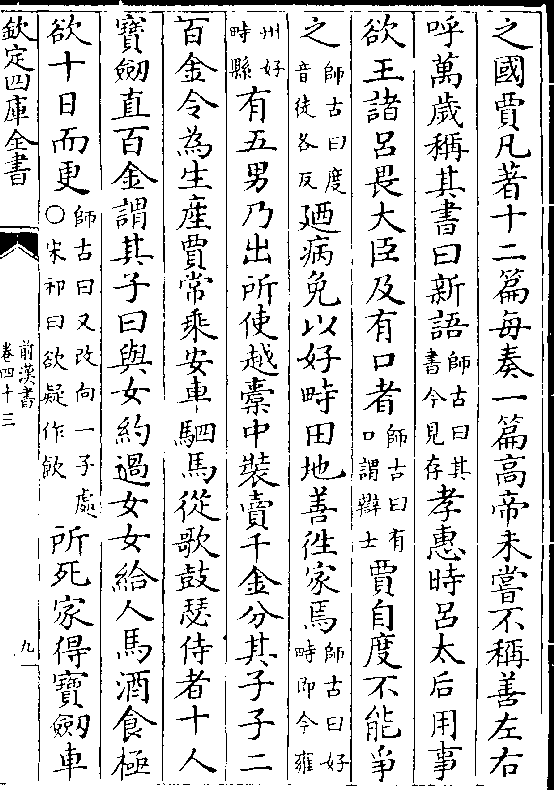 之國賈凡著十二篇每奏一篇高帝未嘗不稱善左右
呼萬歲稱其書曰新語師古曰其書今見存孝惠時呂太后用事
欲王諸呂畏大臣及有口者師古曰有口謂辯士賈自度不能爭
之師古曰度音徒各反廼病免以好畤田地善徃家焉師古曰好畤即今雍
州好畤縣有五男乃出所使越橐中裝賣千金分其子子二
百金令為生產賈常乘安車駟馬從歌鼓瑟侍者十人
寶劒直百金謂其子曰與女約過女女給人馬酒食極
欲十日而更師古曰又改向一子處○宋祁曰欲疑作飲所死家得寶劒車
欽定四庫全書
前漢書
卷四十三
九